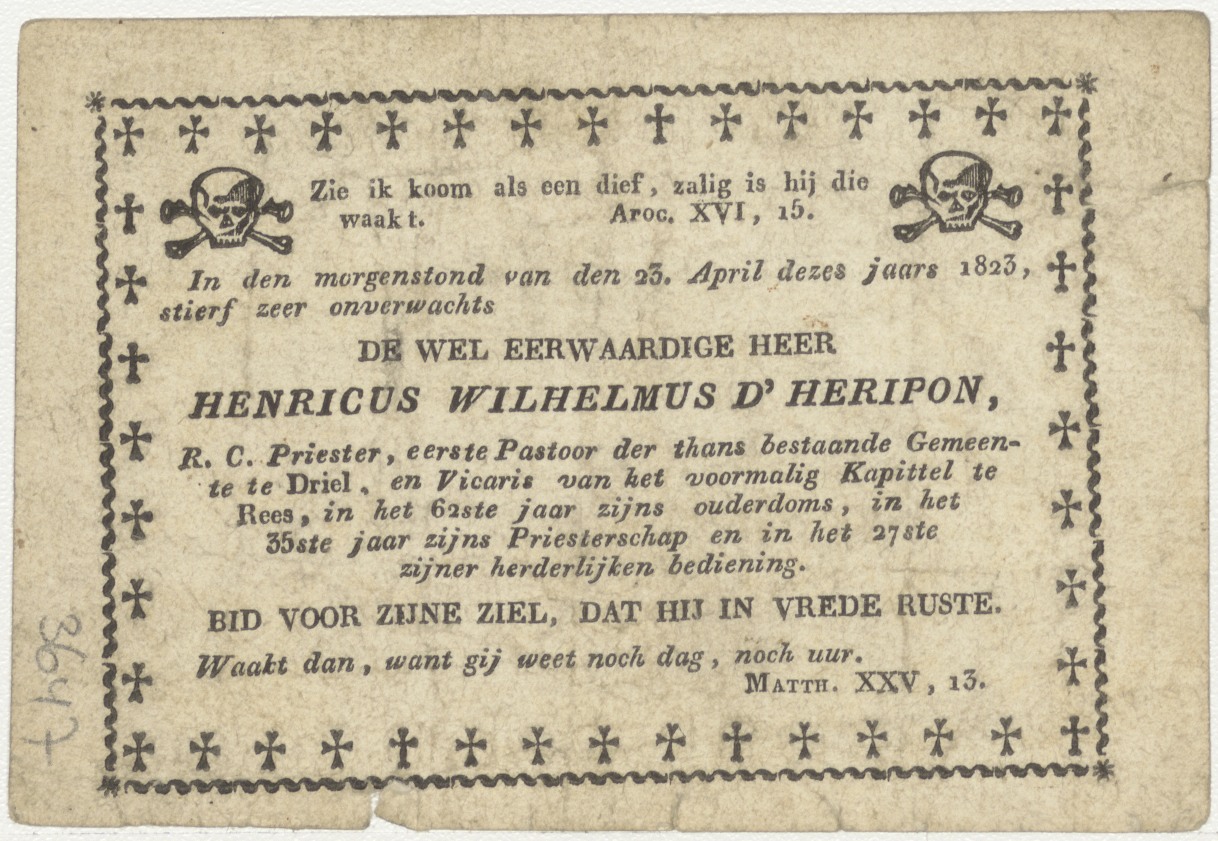 Zie ik koom als een dief, zalig is hij die
waakt. Apoc. XVI, 15.
In den morgenstond van den 23. April dezes jaars 1823,
stierf zeer onverwachts
DE WEL EERWAARDIGE HEER
HENRICUS WILHELMUS D' HERIPON,
R. C. Priester, eerste Pastoor der thans bestaande Gemeen-
te te Driel, en Vicaris van het voormalig Kapittel te
Rees, in het 62ste jaar zijns ouderdoms, in het
35ste jaar zijns Priesterschap en in het 27ste
zijner herderlijken bediening.
BID VOOR ZIJNE ZIEL, DAT HIJ IN VREDE RUSTE.
Waakt dan, want gij weet noch dag, noch uur.
MATTH. XXV, 13.
3647